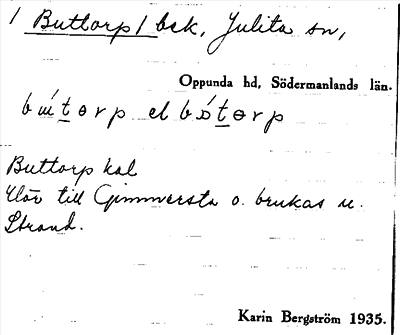 1 Buttorp 1 bck, Julita sn,
Oppunda hd, Södermanlands län.
el
Buttorp kal
Hör till Gimmersta o. brukas u.
Strand.
Karin Bergström 1935.